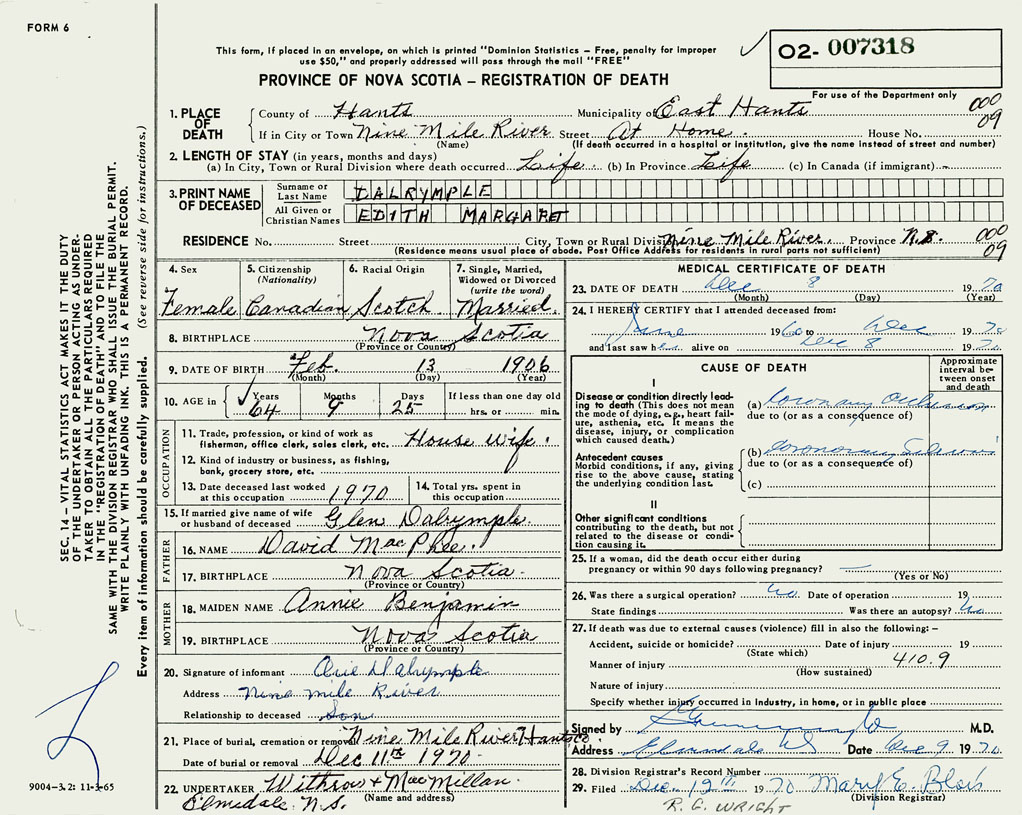 FORM 6
This form, if placed in an envelope, on which is printed "Dominion Statistics – Free, penalty for improper
use $50," and properly addressed will pass through the mail "FREE"
PROVINCE OF NOVA SCOTIA – REGISTRATION OF DEATH
02- 007318
For use of the Department only
000
09
1. PLACE OF DEATH
County of Hants Municipality of East Hants
If in City or Town Nine Mile River Street At Home. House No.
(Name) (If death occurred in a hospital or institution, give the name instead of street and number)
2. LENGTH OF STAY (in years, months and days)
(a) In City, Town or Rural Division where death occurred Life (b) In Province Life (c) In Canada (if immigrant) –
3. PRINT NAME OF DECEASED
Surname or Last Name DALRYMPLE
All Given or Christian Names EDITH MARGARET
RESIDENCE No. Street City, Town or Rural Division Nine Mile River Province N.S.
000
09
(Residence means usual place of abode. Post Office Address for residents in rural parts not sufficient)
4. Sex
Female
5. Citizenship (Nationality)
Canadian
6. Racial Origin
Scotch
7. Single, Married, Widowed or Divorced (write the word)
Married.
8. BIRTHPLACE Nova Scotia
(Province or Country)
9. DATE OF BIRTH Feb. 13 1906
(Month) (Day) (Year)
10. AGE in Years 64 Months 9 Days 25 If less than one day old
hrs. or min.
OCCUPATION
11. Trade, profession, or kind of work as
fisherman, office clerk, sales clerk, etc. House wife.
12. Kind of industry or business, as fishing,
bank, grocery store, etc.
13. Date deceased last worked
at this occupation 1970
14. Total yrs. spent in
this occupation
15. If married give name of wife
or husband of deceased Glen Dalrymple.
FATHER
16. NAME David MacPhee.
17. BIRTHPLACE Nova Scotia.
(Province or Country)
MOTHER
18. MAIDEN NAME Annie Benjamin
19. BIRTHPLACE Nova Scotia
(Province or Country)
20. Signature of informant Dalrymple
Address Nine mile River
Relationship to deceased Son
21. Place of burial, cremation or removal Nine Mile River Hants Co.
Date of burial or removal Dec 11th 1970.
22. UNDERTAKER Withrow + MacMillan.
Elmsdale N.S. (Name and address)
MEDICAL CERTIFICATE OF DEATH
23. DATE OF DEATH Dec 8 1970
(Month) (Day) (Year)
24. I HEREBY CERTIFY that I attended deceased from:
June 1960 to Dec 1970
and last saw her alive on Dec 8 1970
CAUSE OF DEATH
Approximate interval between onset and death
I
Disease or condition directly leading
to death (This does not mean
the mode of dying, e.g., heart failure,
asthenia, etc. It means the
disease, injury, or complication
which caused death.)
(a) Coronary Occlusion
due to (or as a consequence of)
Antecedent causes
Morbid conditions, if any, giving
rise to the above cause, stating
the underlying condition last.
(b) Coronary
due to (or as a consequence of)
(c)
II
Other significant conditions
contributing to the death, but not
related to the disease or condition
causing it.
25. If a woman, did the death occur either during
pregnancy or within 90 days following pregnancy? —
(Yes or No)
26. Was there a surgical operation? No Date of operation 19
State findings Was there an autopsy? No
27. If death was due to external causes (violence) fill in also the following: –
Accident, suicide or homicide? Date of injury 19
(State which)
Manner of injury 410.9
(How sustained)
Nature of injury
Specify whether injury occurred in Industry, in home, or in public place
Signed by M.D.
Address Elmsdale NS Date Dec 9 1970
28. Division Registrar's Record Number
29. Filed Dec. 12th 1970 Mary E. Blois
(Division Registrar)
R. G. WRIGHT
SEC. 14 – VITAL STATISTICS ACT MAKES IT THE DUTY
OF THE UNDERTAKER OR PERSON ACTING AS UNDERTAKER
TO OBTAIN ALL THE PARTICULARS REQUIRED
IN THE "REGISTRATION OF DEATH" AND TO FILE THE
SAME WITH THE DIVISION REGISTRAR WHO SHALL ISSUE THE BURIAL PERMIT.
WRITE PLAINLY WITH UNFADING INK. THIS IS A PERMANENT RECORD.
Every item of information should be carefully supplied. (See reverse side for instructions.)
9004–3.2: 11-3-65